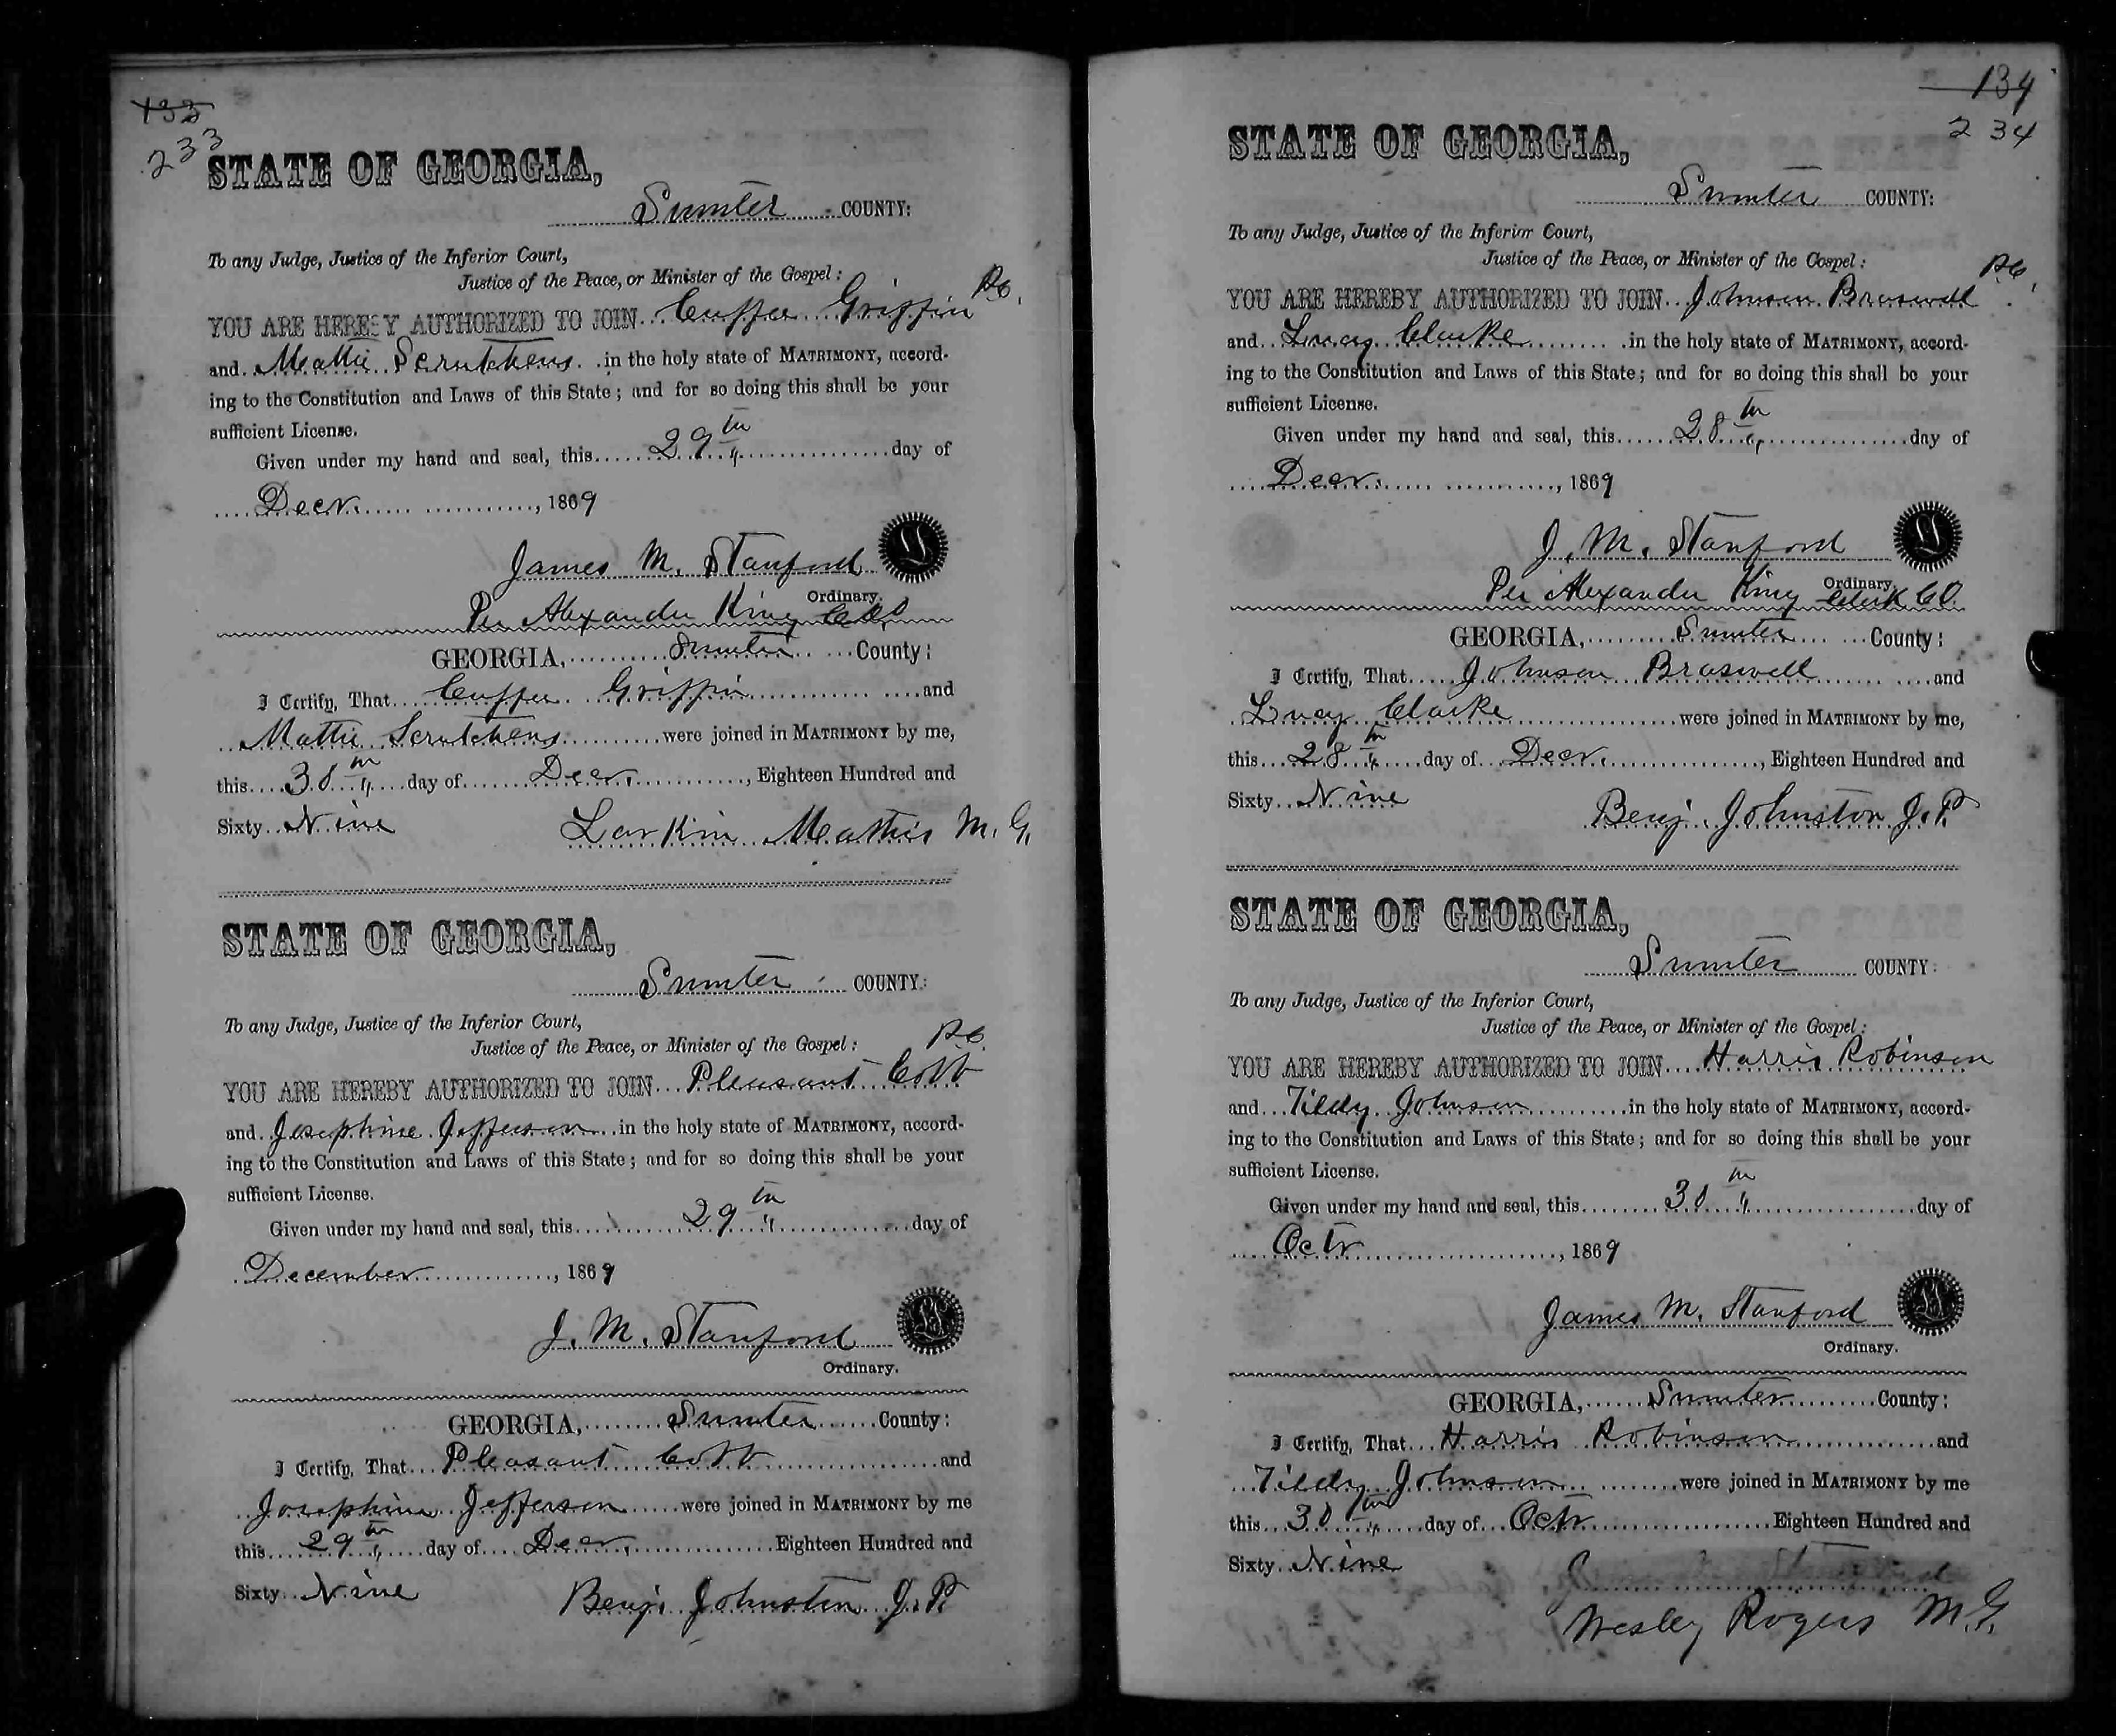 133
233
STATE OF GEORGIA,
Sumter COUNTY:
To any Judge, Justice of the Inferior Court,
Justice of the Peace, or Minister of the Gospel:
P.C.
YOU ARE HEREBY AUTHORIZED TO JOIN Cuffee Griffin
and Mattie Scrutchens in the holy state of MATRIMONY, accord-
ing to the Constitution and Laws of this State; and for so doing this shall be your
sufficient License.
Given under my hand and seal, this 29th day of
Decr. , 1869
James M. Stanford
Ordinary.
Per Alexander King C.C.O
GEORGIA, Sumter County:
I Certify, That Cuffee Griffin and
Mattie Scrutchens were joined in MATRIMONY by me,
this 30th day of Decr. , Eighteen Hundred and
Sixty Nine
Larkin Mathis M.G.
STATE OF GEORGIA,
Sumter COUNTY:
To any Judge, Justice of the Inferior Court,
Justice of the Peace, or Minister of the Gospel:
P.C.
YOU ARE HEREBY AUTHORIZED TO JOIN Pleasant Cobb
and Josephine Jefferson in the holy state of MATRIMONY, accord-
ing to the Constitution and Laws of this State; and for so doing this shall be your
sufficient License.
Given under my hand and seal, this 29th day of
December , 1869
J. M. Stanford
Ordinary.
GEORGIA, Sumter County:
I Certify, That Pleasant Cobb and
Josephine Jefferson were joined in MATRIMONY by me
this 29th day of Decr. Eighteen Hundred and
Sixty Nine
Benj. Johnston J.P.
134
234
STATE OF GEORGIA,
Sumter COUNTY:
To any Judge, Justice of the Inferior Court,
Justice of the Peace, or Minister of the Gospel:
P.C.
YOU ARE HEREBY AUTHORIZED TO JOIN Johnson Braswell
and Lucy Clarke in the holy state of MATRIMONY, accord-
ing to the Constitution and Laws of this State; and for so doing this shall be your
sufficient License.
Given under my hand and seal, this 28th day of
Decr. , 1869
J. M. Stanford
Ordinary.
Per Alexander King Clerk C.O.
GEORGIA, Sumter County:
I Certify, That Johnson Braswell and
Lucy Clarke were joined in MATRIMONY by me,
this 28th day of Decr. , Eighteen Hundred and
Sixty Nine
Benj. Johnston J.P.
STATE OF GEORGIA,
Sumter COUNTY:
To any Judge, Justice of the Inferior Court,
Justice of the Peace, or Minister of the Gospel:
YOU ARE HEREBY AUTHORIZED TO JOIN Harris Robinson
and Tildy Johnson in the holy state of MATRIMONY, accord-
ing to the Constitution and Laws of this State; and for so doing this shall be your
sufficient License.
Given under my hand and seal, this 30th day of
Octr , 1869
James M. Stanford
Ordinary.
GEORGIA, Sumter County:
I Certify, That Harris Robinson and
Tildy Johnson were joined in MATRIMONY by me
this 30th day of Octr Eighteen Hundred and
Sixty Nine
Wesley Rogers M.G.